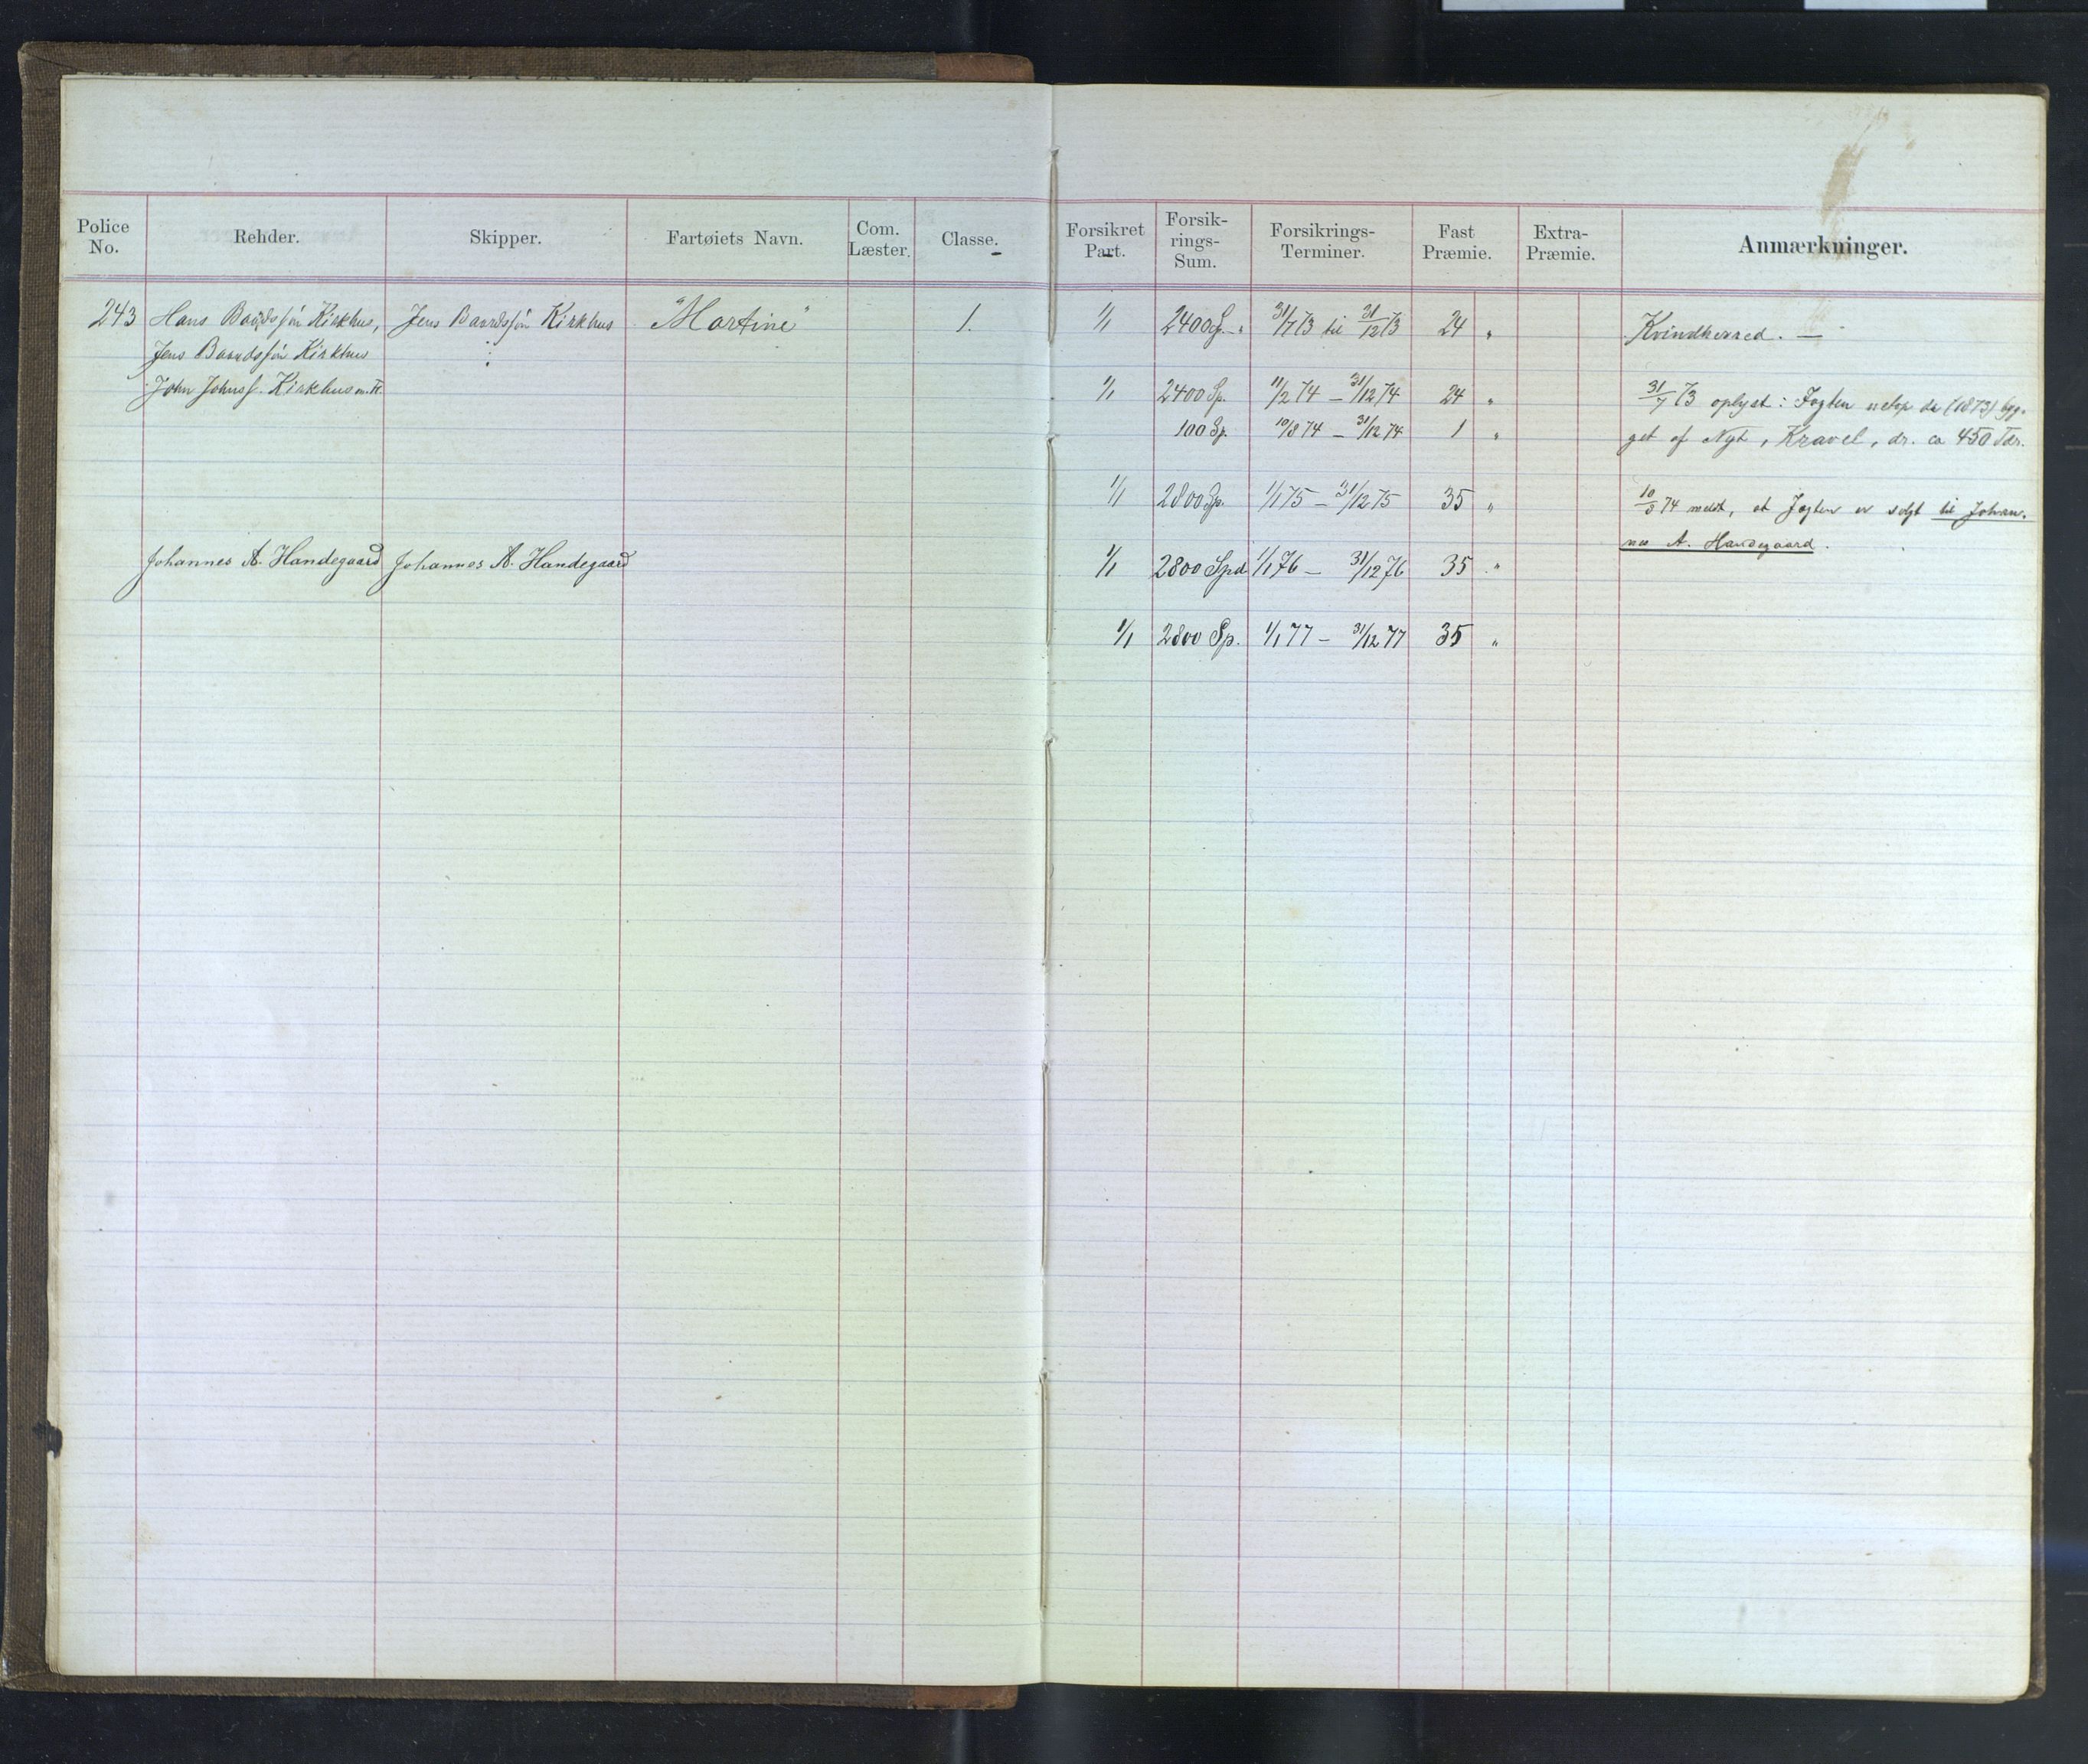 Police No.	Rehder.	Skipper.	Fartøiets Navn.	Com. Læster.	Classe.	Forsikret Part.	Forsik-rings-Sum.	Forsikrings-Terminer.	Fast Præmie.	Extra-Præmie.	Anmærkninger.
243	Hans Baardssön Kirkhus,	Jens Baardssön Kirkhus	"Martine"	1.	1/1	2400 Sp. „	31/7 73 til 31/12 73	24 „	Kvindherred. —
Jens Baardssön Kirkhus
John Johnss. Kirkhus m. Fl.	1/1	2400 Sp.	11/2 74 — 31/12 74	24 „	31/7 73 oplyst: Jagten netop da (1873) byg-
100 Sp.	10/8 74 — 31/12 74	1 „	get af Nyt, Kravel, dr. ca 450 Tdr.
1/1	2800 Sp.	1/1 75 — 31/12 75	35 „	10/8 74 meldt, at Jagten er solgt til Johan-
nes A. Handegaard.
Johannes A. Handegaard	Johannes A. Handegaard	1/1	2800 Spd	1/1 76 — 31/12 76	35 „
1/1	2800 Sp.	1/1 77 — 31/12 77	35 „